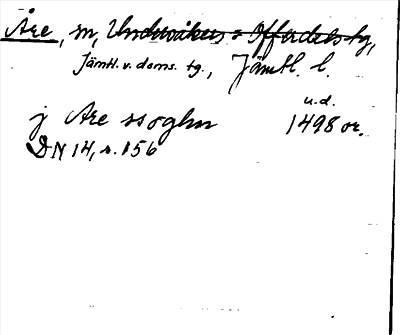 Åre, sn, Undersåkers o Offerdals tg,
Jämtl. v. doms. tg., Jämtl. l.
u.d.
j Are ssoghn 1498 or.
DN 14, s. 156